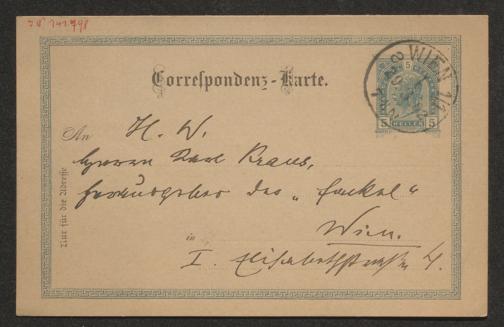 Correspondenz-Karte.
WIEN 1/1
5
5 HELLER 5
An H. W.
Herrn Karl Kraus,
Herausgeber der „Fackel“
Wien.
in
I. Elisabethstrasse 4.
Nur für die Adresse